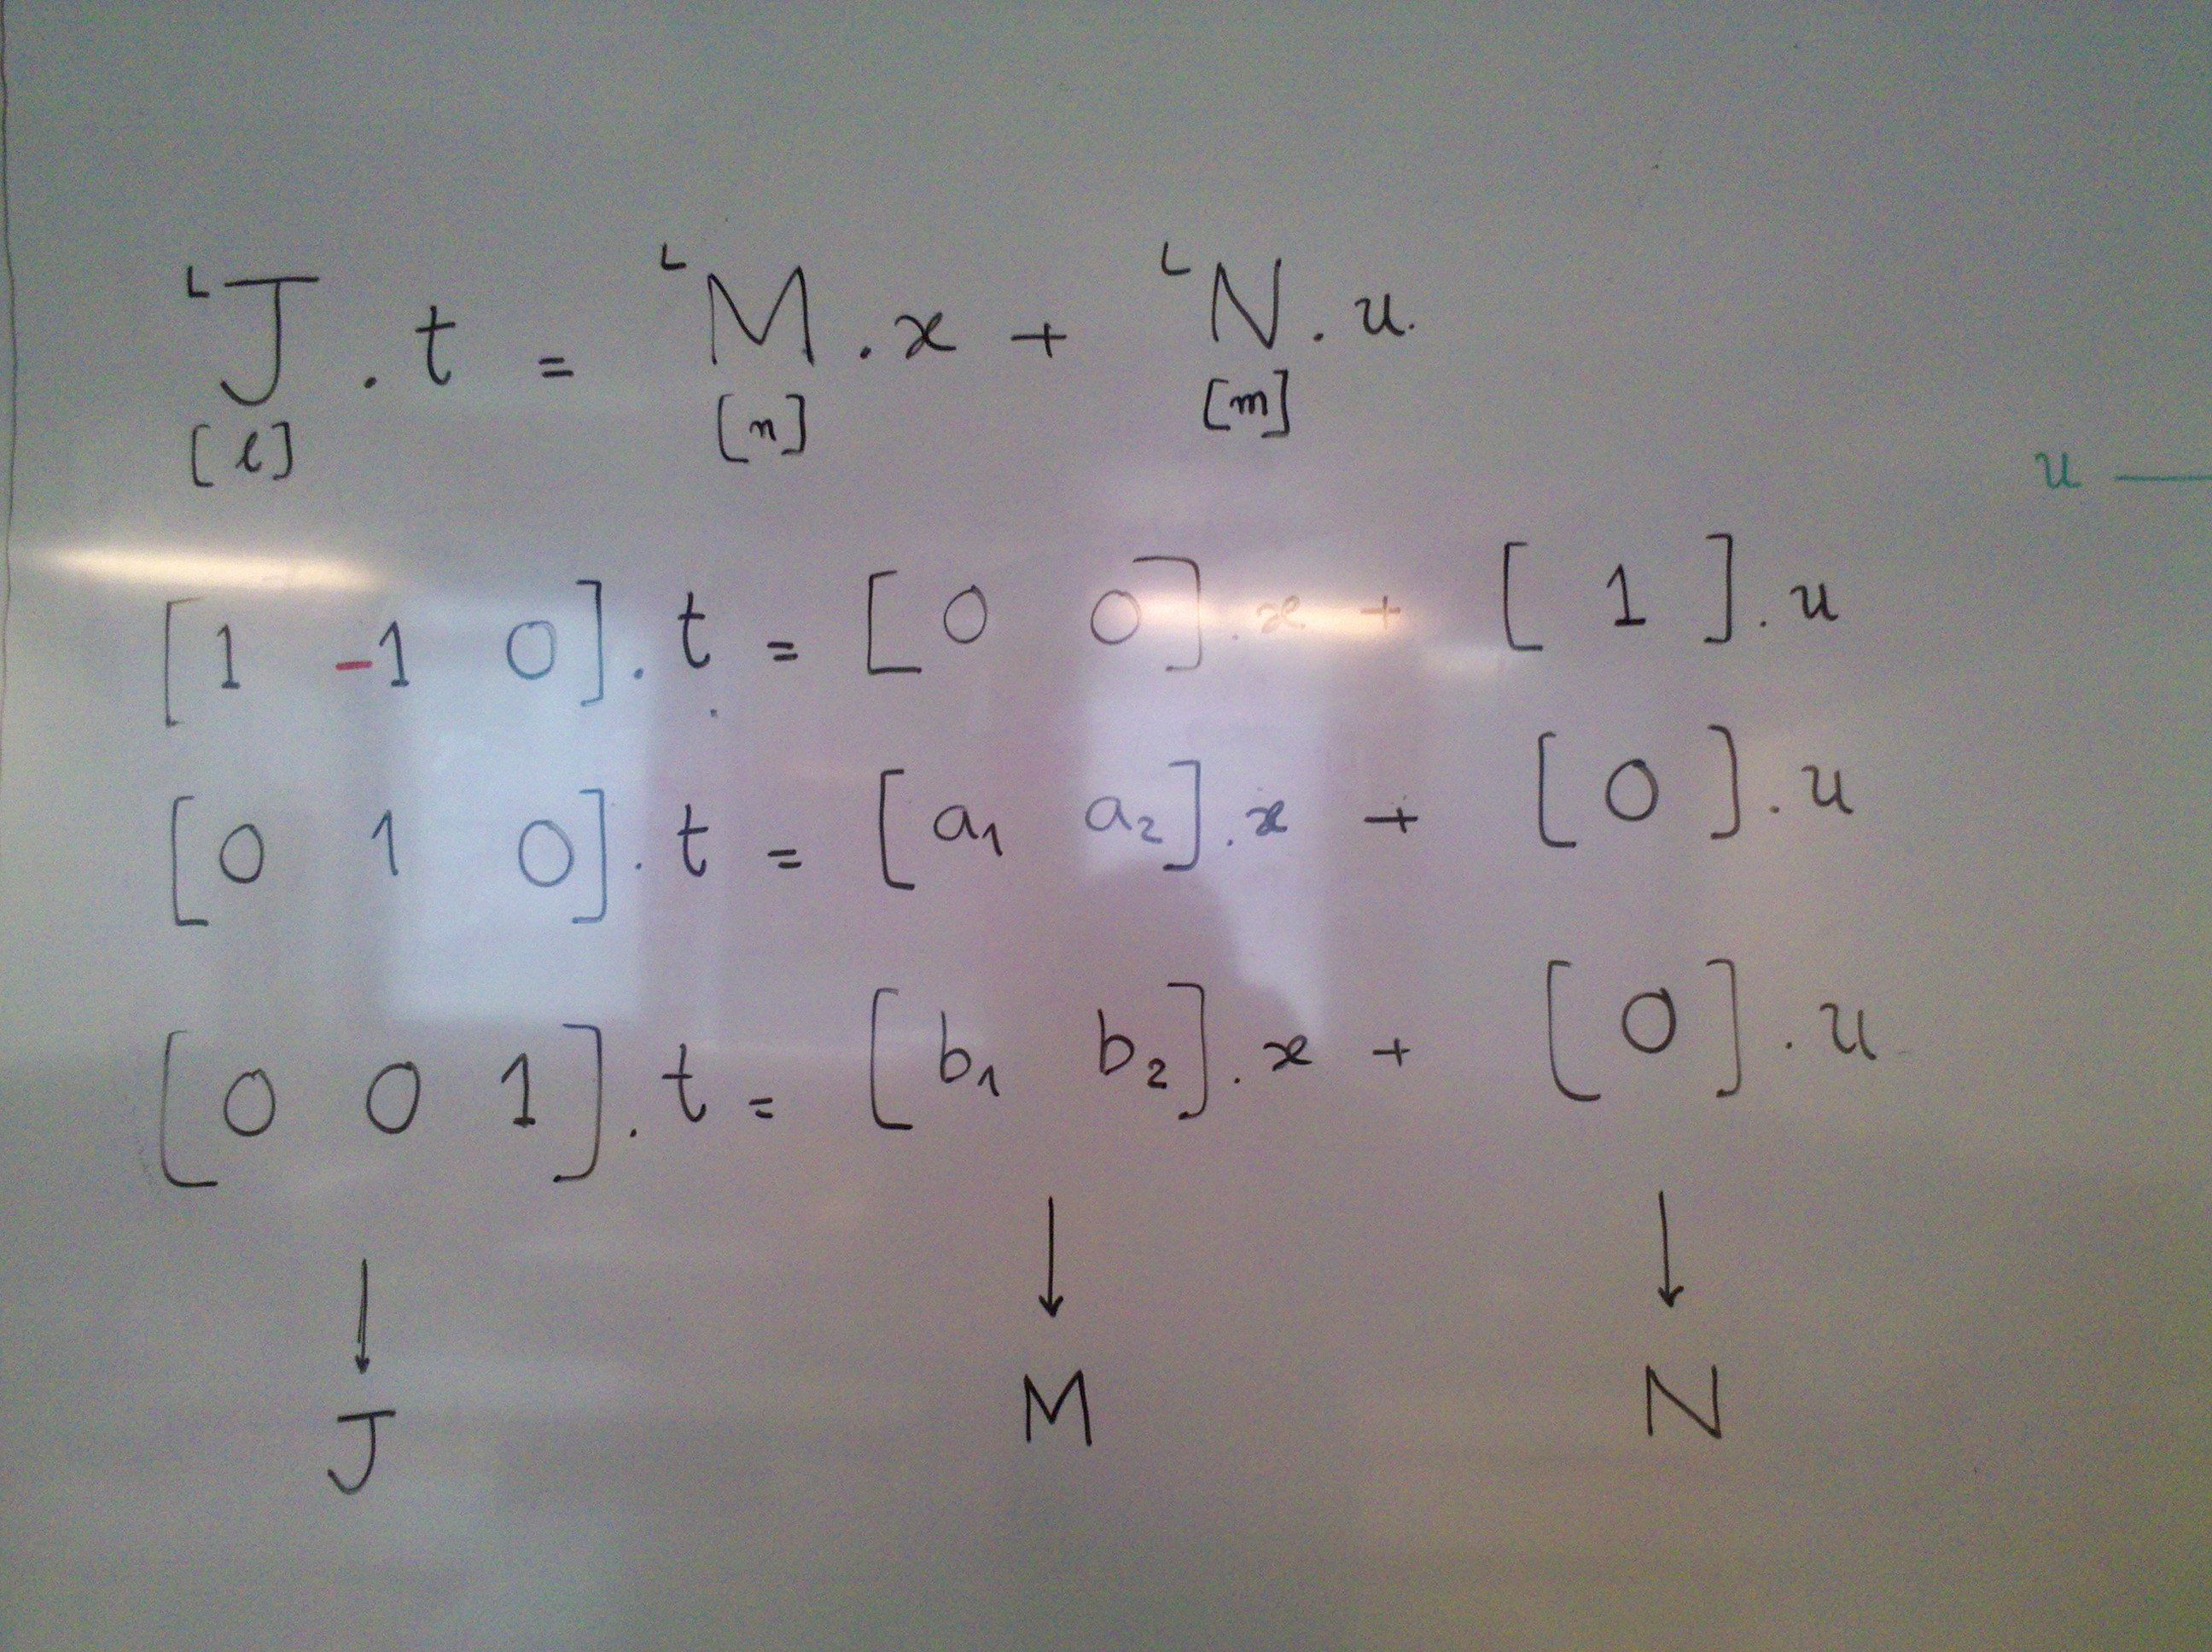 ᴸJ . t = ᴸM . x + ᴸN . u.
[l] [n] [m]
u —
[1 -1 0] . t = [0 0] . x + [1] . u
[0 1 0] . t = [a₁ a₂] . x + [0] . u
[0 0 1] . t = [b₁ b₂] . x + [0] . u
↓ ↓ ↓
J M N